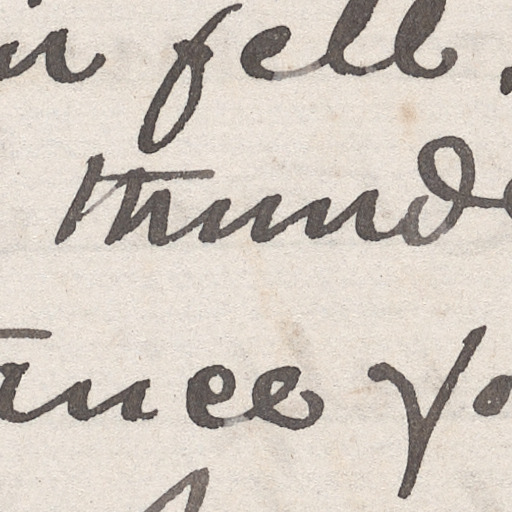 fell.
thunde
ance yo